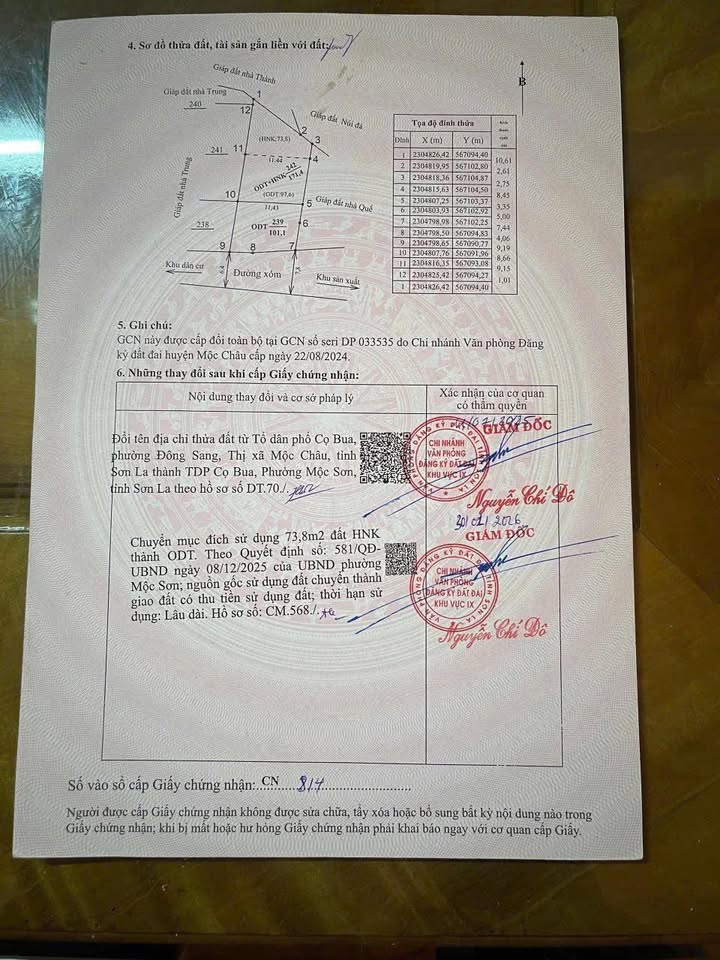 4. Sơ đồ thửa đất, tài sản gắn liền với đất:
B
Giáp đất nhà Thành
Giáp đất nhà Trung
240
1
12
Giáp đất Núi đá
2
3
(HNK:73,5)
241
11
11,44
4
ODT+HNK 242
171,4
Giáp đất nhà Trung
10
(ODT:97,6)
11,43
5
Giáp đất nhà Quế
238
ODT 239
101,1
6
9
8
7
Khu dân cư
Đường xóm
Khu sản xuất
Tọa độ đỉnh thửa
Đỉnh X (m) Y (m)
1 2304826,42 567094,40
10,61
2 2304819,95 567102,80
2,61
3 2304818,36 567104,87
2,75
4 2304815,63 567104,50
8,45
5 2304807,25 567103,37
3,35
6 2304803,93 567102,92
5,00
7 2304798,98 567102,25
7,44
8 2304798,50 567094,83
4,06
9 2304798,65 567090,77
9,19
10 2304807,76 567091,96
8,66
11 2304816,35 567093,08
9,15
12 2304825,42 567094,27
1,01
1 2304826,42 567094,40
5. Ghi chú:
GCN này được cấp đổi toàn bộ tại GCN số seri DP 033535 do Chi nhánh Văn phòng Đăng
ký đất đai huyện Mộc Châu cấp ngày 22/08/2024.
6. Những thay đổi sau khi cấp Giấy chứng nhận:
Nội dung thay đổi và cơ sở pháp lý
Xác nhận của cơ quan
có thẩm quyền
Đổi tên địa chỉ thửa đất từ Tổ dân phố Cọ Bua,
phường Đông Sang, Thị xã Mộc Châu, tỉnh
Sơn La thành TDP Cọ Bua, Phường Mộc Sơn,
tỉnh Sơn La theo hồ sơ số DT.70./.
GIÁM ĐỐC
CHI NHÁNH
VĂN PHÒNG
ĐĂNG KÝ ĐẤT ĐAI
KHU VỰC IX
Nguyễn Chí Đô
Chuyển mục đích sử dụng 73,8m2 đất HNK
thành ODT. Theo Quyết định số: 581/QĐ-
UBND ngày 08/12/2025 của UBND phường
Mộc Sơn; nguồn gốc sử dụng đất chuyển thành
giao đất có thu tiền sử dụng đất; thời hạn sử
dụng: Lâu dài. Hồ sơ số: CM.568./.
30/01/2026
GIÁM ĐỐC
VĂN PHÒNG ĐĂNG KÝ ĐẤT ĐAI TỈNH SƠN LA
CHI NHÁNH
VĂN PHÒNG
ĐĂNG KÝ ĐẤT ĐAI
KHU VỰC IX
Nguyễn Chí Đô
Số vào sổ cấp Giấy chứng nhận: CN 814
Người được cấp Giấy chứng nhận không được sửa chữa, tẩy xóa hoặc bổ sung bất kỳ nội dung nào trong
Giấy chứng nhận; khi bị mất hoặc hư hỏng Giấy chứng nhận phải khai báo ngay với cơ quan cấp Giấy.